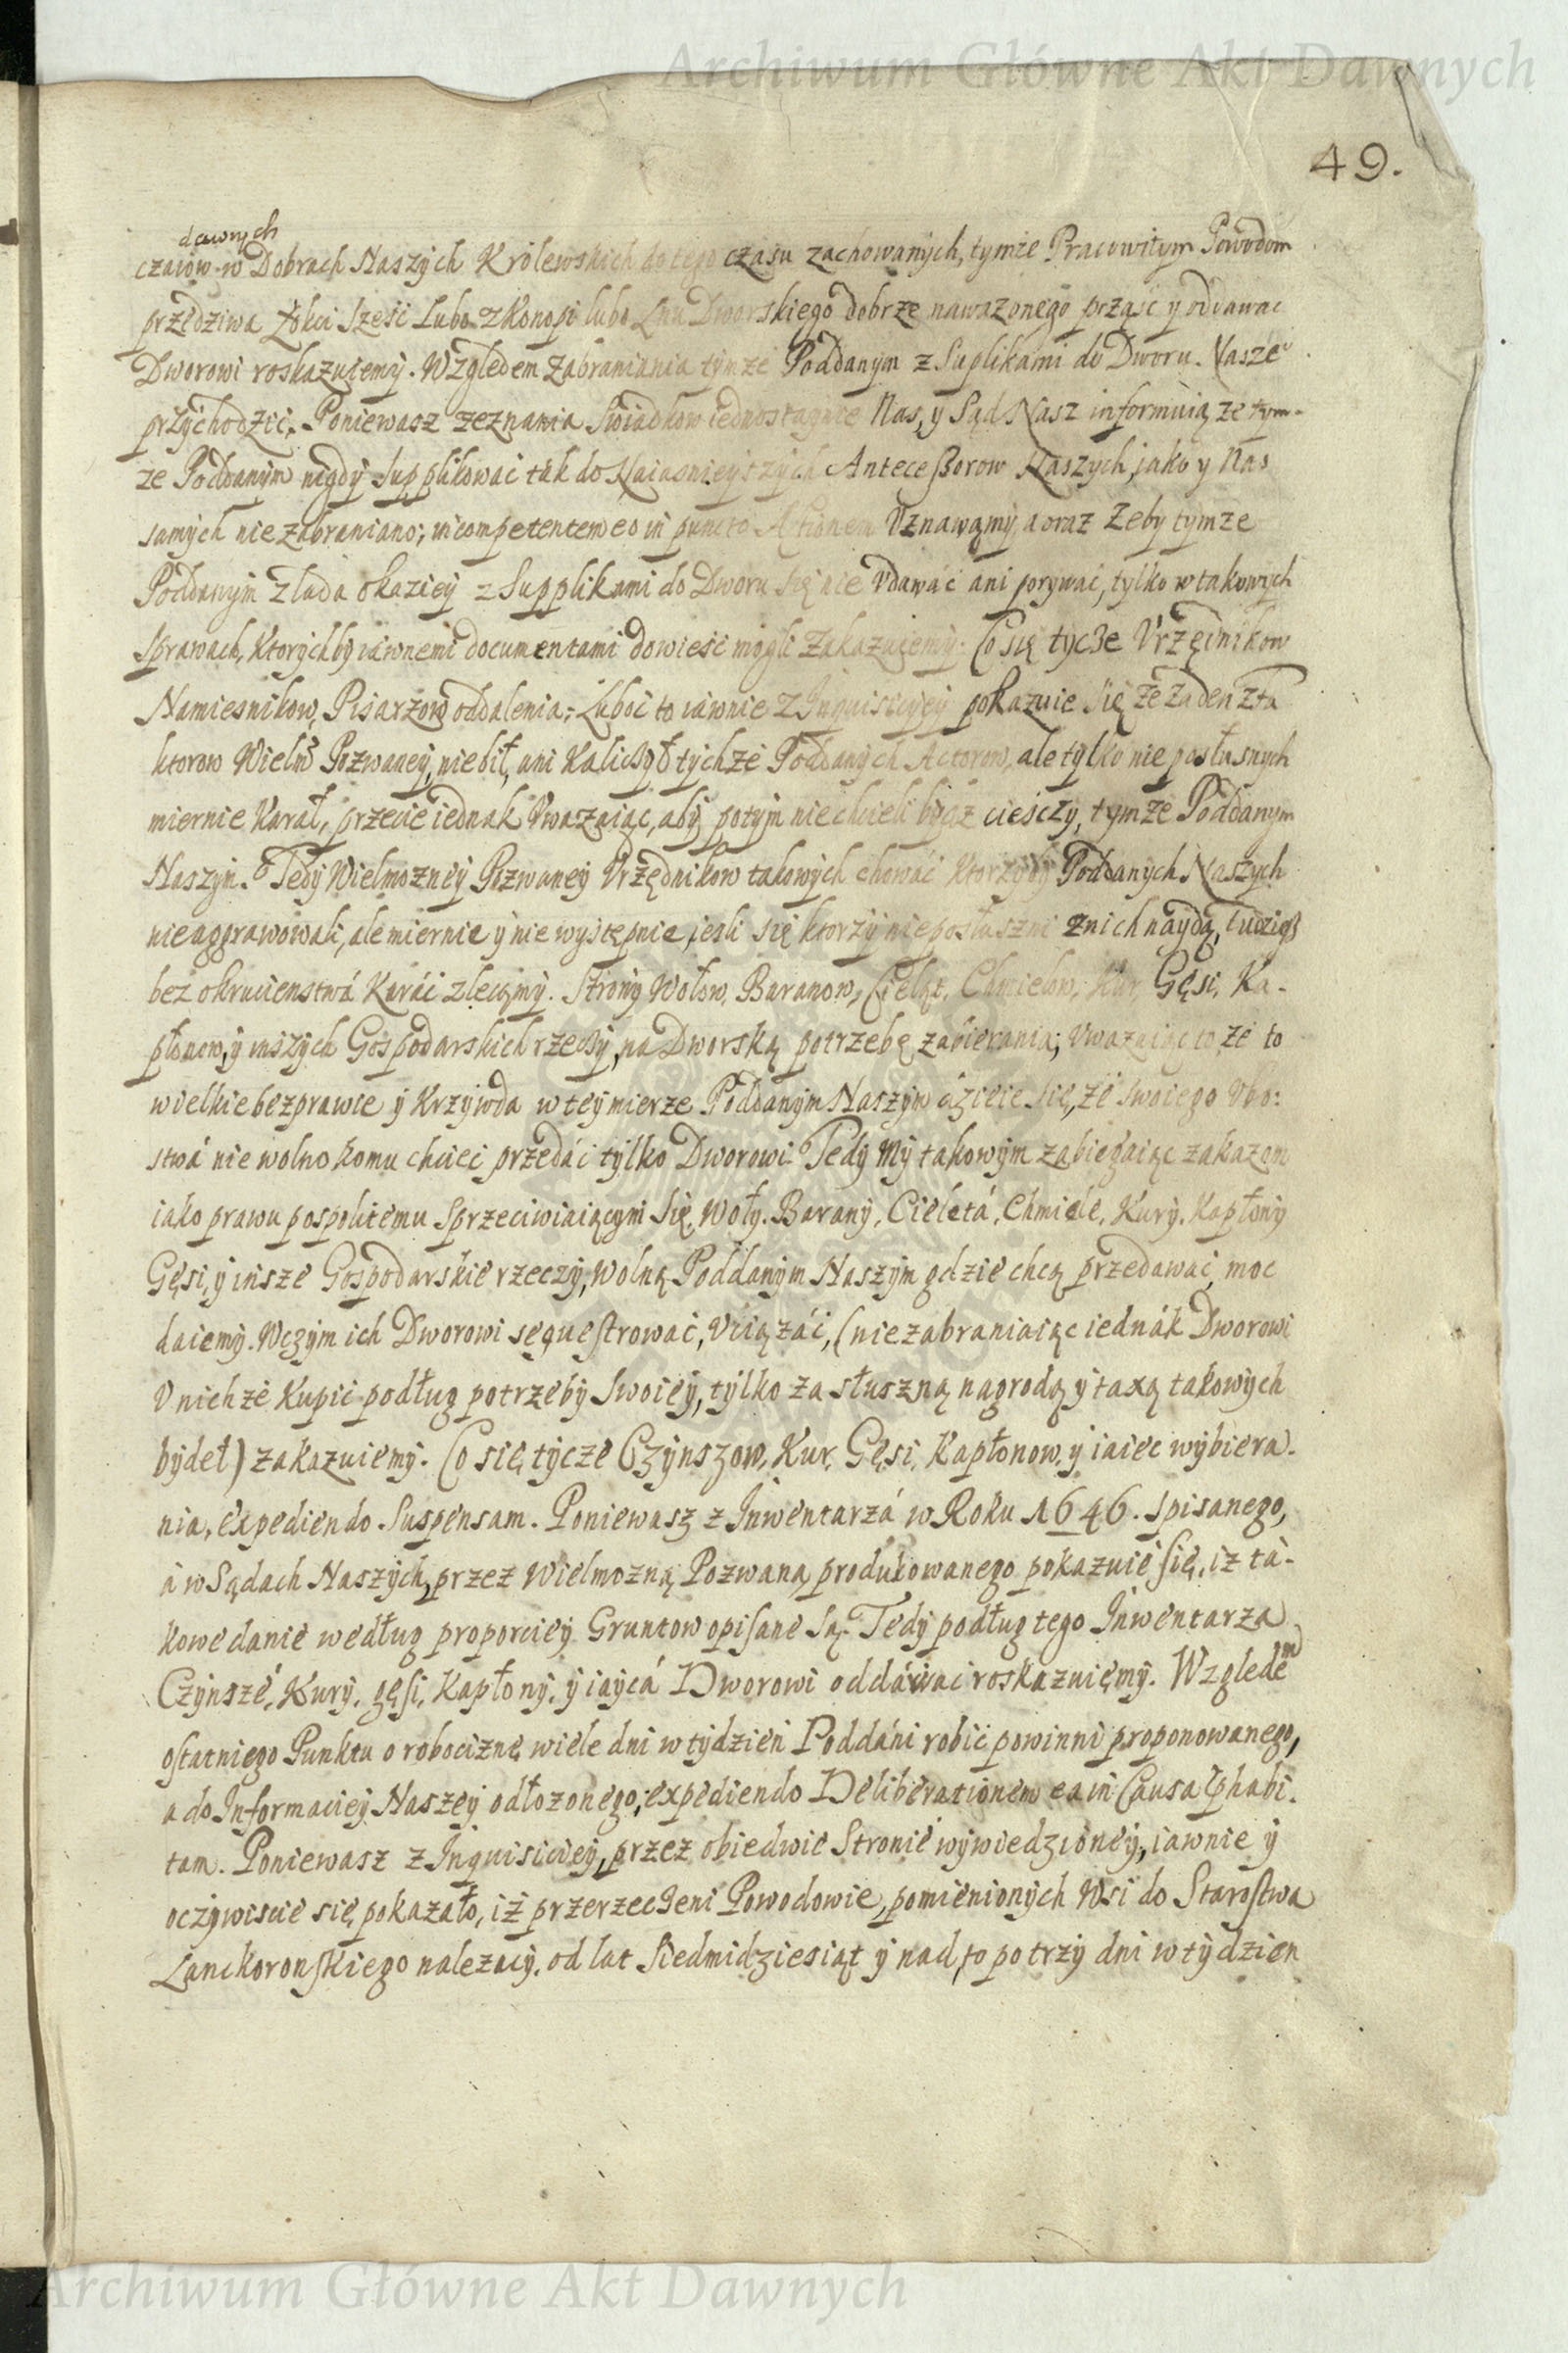 Archiwum Główne Akt Dawnych
49.
dawnych
czasow w Dobrach Naszych Krolewskich do tego czasu zachowanych, tymże Pracowitym Powodom
przędziwa Łokci sześć Lubo z Konopi lubo Lnu Dworskiego dobrze naważonego prząść y oddawać
Dworowi roskazuiemy. Względem zabraniania tymże Poddanym z Suplikami do Dworu Nasze°
przychodzić. Poniewasz zeznania Swiadkow iednostaynie Nas, y Sąd Nasz informuią ze tym-
ze Poddanym nigdy supplikować tak do Naiasnieyszych Anteceßorow Naszych, jako y Nas
samych nie zabraniano; incompetentem eo in puncto Actionem Uznawamy, a oraz żeby tymze
Poddanym z lada okaziey z Supplikami do Dworu się nie Udawać ani porywać, tylko w takowych
sprawach, ktorychby iawnemi documentami dowieść mogli zakazuiemy. Co się tycze Urzędnikow
Namiesnikow, Pisarzow oddalenia; Luboć to iawnie z Inquisiciey pokazuie się że żaden z Fa
ktorow Wielm Pozwaney, nie bił, ani Kaliczył tychże Poddanych Actorow, ale tylko nie posłusnych
miernie Karał, przecie iednak Uwazaiąc, aby potym nie chcieli bydz ciesczy, tymże Poddanym
Naszym. Tedy Wielmozney Pozwaney Urzędnikow takowych chować ktorzyby Poddanych Naszych
nie aggrawowali, ale miernie y nie występnie, jesli się ktorzy nieposłuszni z nich naydą, ludzięß
bez okrucienstwá Karáć zlecamy. Strony Wołow, Baranow, Cieląt, Chmielow, Kur, Gęsi, Ka-
płonow, y inszych Gospodarskich rzeczy, na Dworską potrzebę zabierania; Uwazaiąc to, że to
wielkie bezprawie y Krzywda w tey mierze Poddanym Naszym dzieie się, że swoiego Ubo:
stwá nie wolno komu chcieć przedáć tylko Dworowi. Tedy My takowym zabiegaiąc zakazom
iako prawu pospolitemu sprzeciwiaiącym się, Woły, Barany, Cielętá, Chmiele, Kury, Kapłony
Gęsi, y insze Gospodarskie rzeczy, wolną Poddanym Naszym gdzie chcą przedawać moc
daiemy. Wczym ich Dworowi sequestrować, Uciązáć, (nie zabraniaiąc iednák Dworowi
U nichże Kupić podług potrzeby swoiey, tylko za słuszną nagrodą y taxą takowych
bydeł) zakazuiemy. Co się tycze Czynszow, Kur, Gęsi, Kapłonow, y iaiec wybiera-
nia, expediendo Suspensam. Poniewasz z Inwentarzá w Roku 1646. spisanego,
á w Sądach Naszych, przez Wielmozną Pozwaną produkowanego pokazuie się, iz ta-
kowe danie według proporciey Gruntow opisane są. Tedy podług tego Inwentarza
Czynsze, Kury, gęsi, Kapłony, y iaycá Dworowi oddáwać roskazuiemy. Względem
ostatniego Punktu o robociznę wiele dni w tydzień Poddáni robić powinni proponowanego,
a do Informaciey Naszey odłozonego, expediendo Deliberationem ea in Causa phabi-
tam. Poniewasz z Inquisiciey, przez obiedwie Stronie wywiedzioney, iawnie y
oczywiscie się pokazało, iż przerzeczeni Powodowie, pomienionych Wsi do Starostwa
Lanckoronskiego nalezacy, od lat siedmidziesiąt y nad, to po trzy dni w tydzien
Archiwum Główne Akt Dawnych